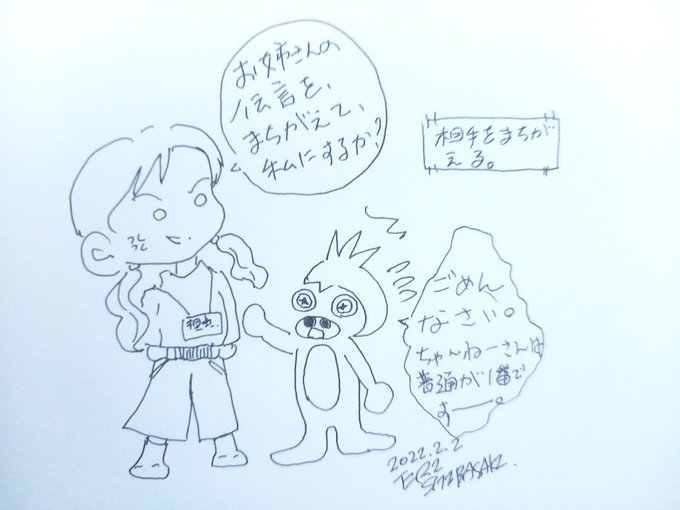 お姉さんの
伝言を、
まちがえて、
私にするか?
相手をまちが
える。
ごめん
なさい。
ちゃんねーさんは
普通が1番で
すー。
2022.2.2